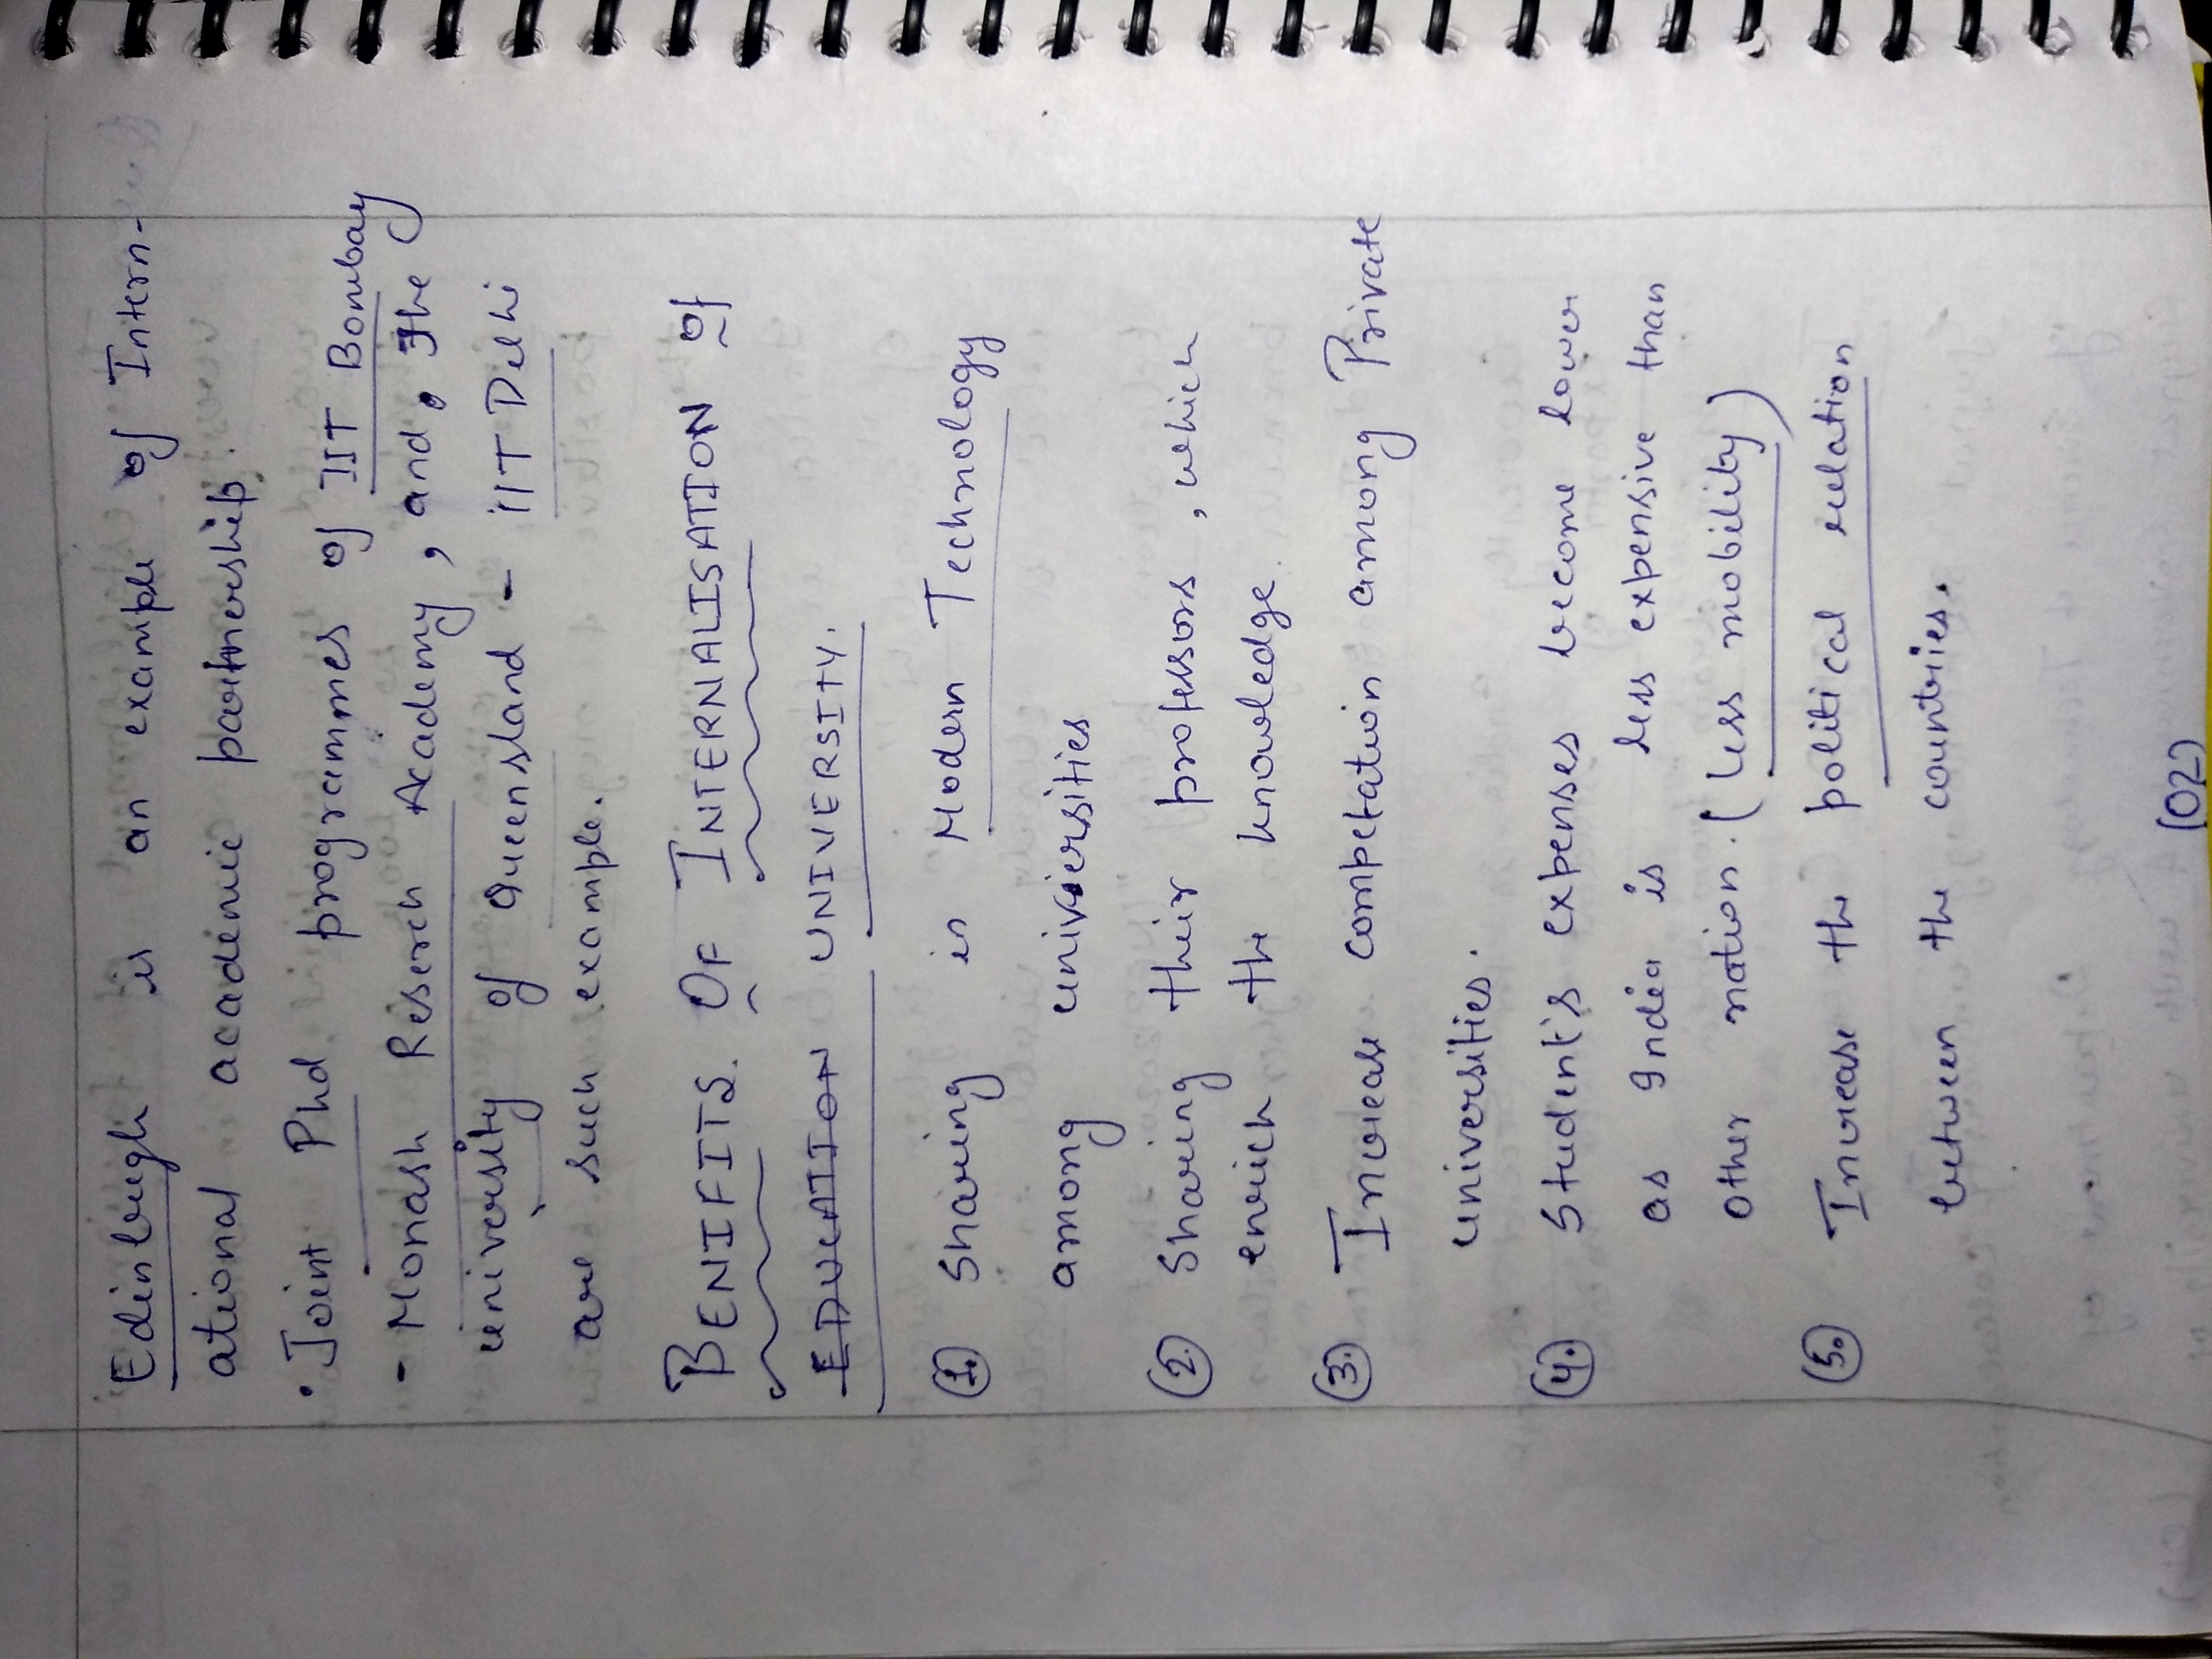 Edinbugh is an example of Intern-
ational academic partnership.
• Joint Phd programmes of IIT Bombay
- Monash Reserch Academy, and, The
university of Queensland - IIT Delhi
are such example.
BENIFITS OF INTERNALISATION of
EDUCATION UNIVERSITY.
1. Sharing is Modern Technology
among universities
2. Sharing their professors, which
enrich the knowledge.
3. Increase competation among Private
universities.
4. Student's expenses become lower
as India is less expensive than
other nation. (less mobility)
5. Increase the political relation
between the countries.
(02)